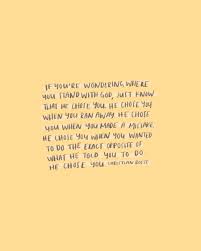 IF YOU'RE WONDERING WHERE
YOU STAND WITH GOD, JUST KNOW
THAT HE CHOSE YOU. HE CHOSE YOU
WHEN YOU RAN AWAY. HE CHOSE
YOU WHEN YOU MADE A MISTAKE.
HE CHOSE YOU WHEN YOU WANTED
TO DO THE EXACT OPPOSITE OF
WHAT HE TOLD YOU TO DO.
HE CHOSE YOU. CHRISTIAN